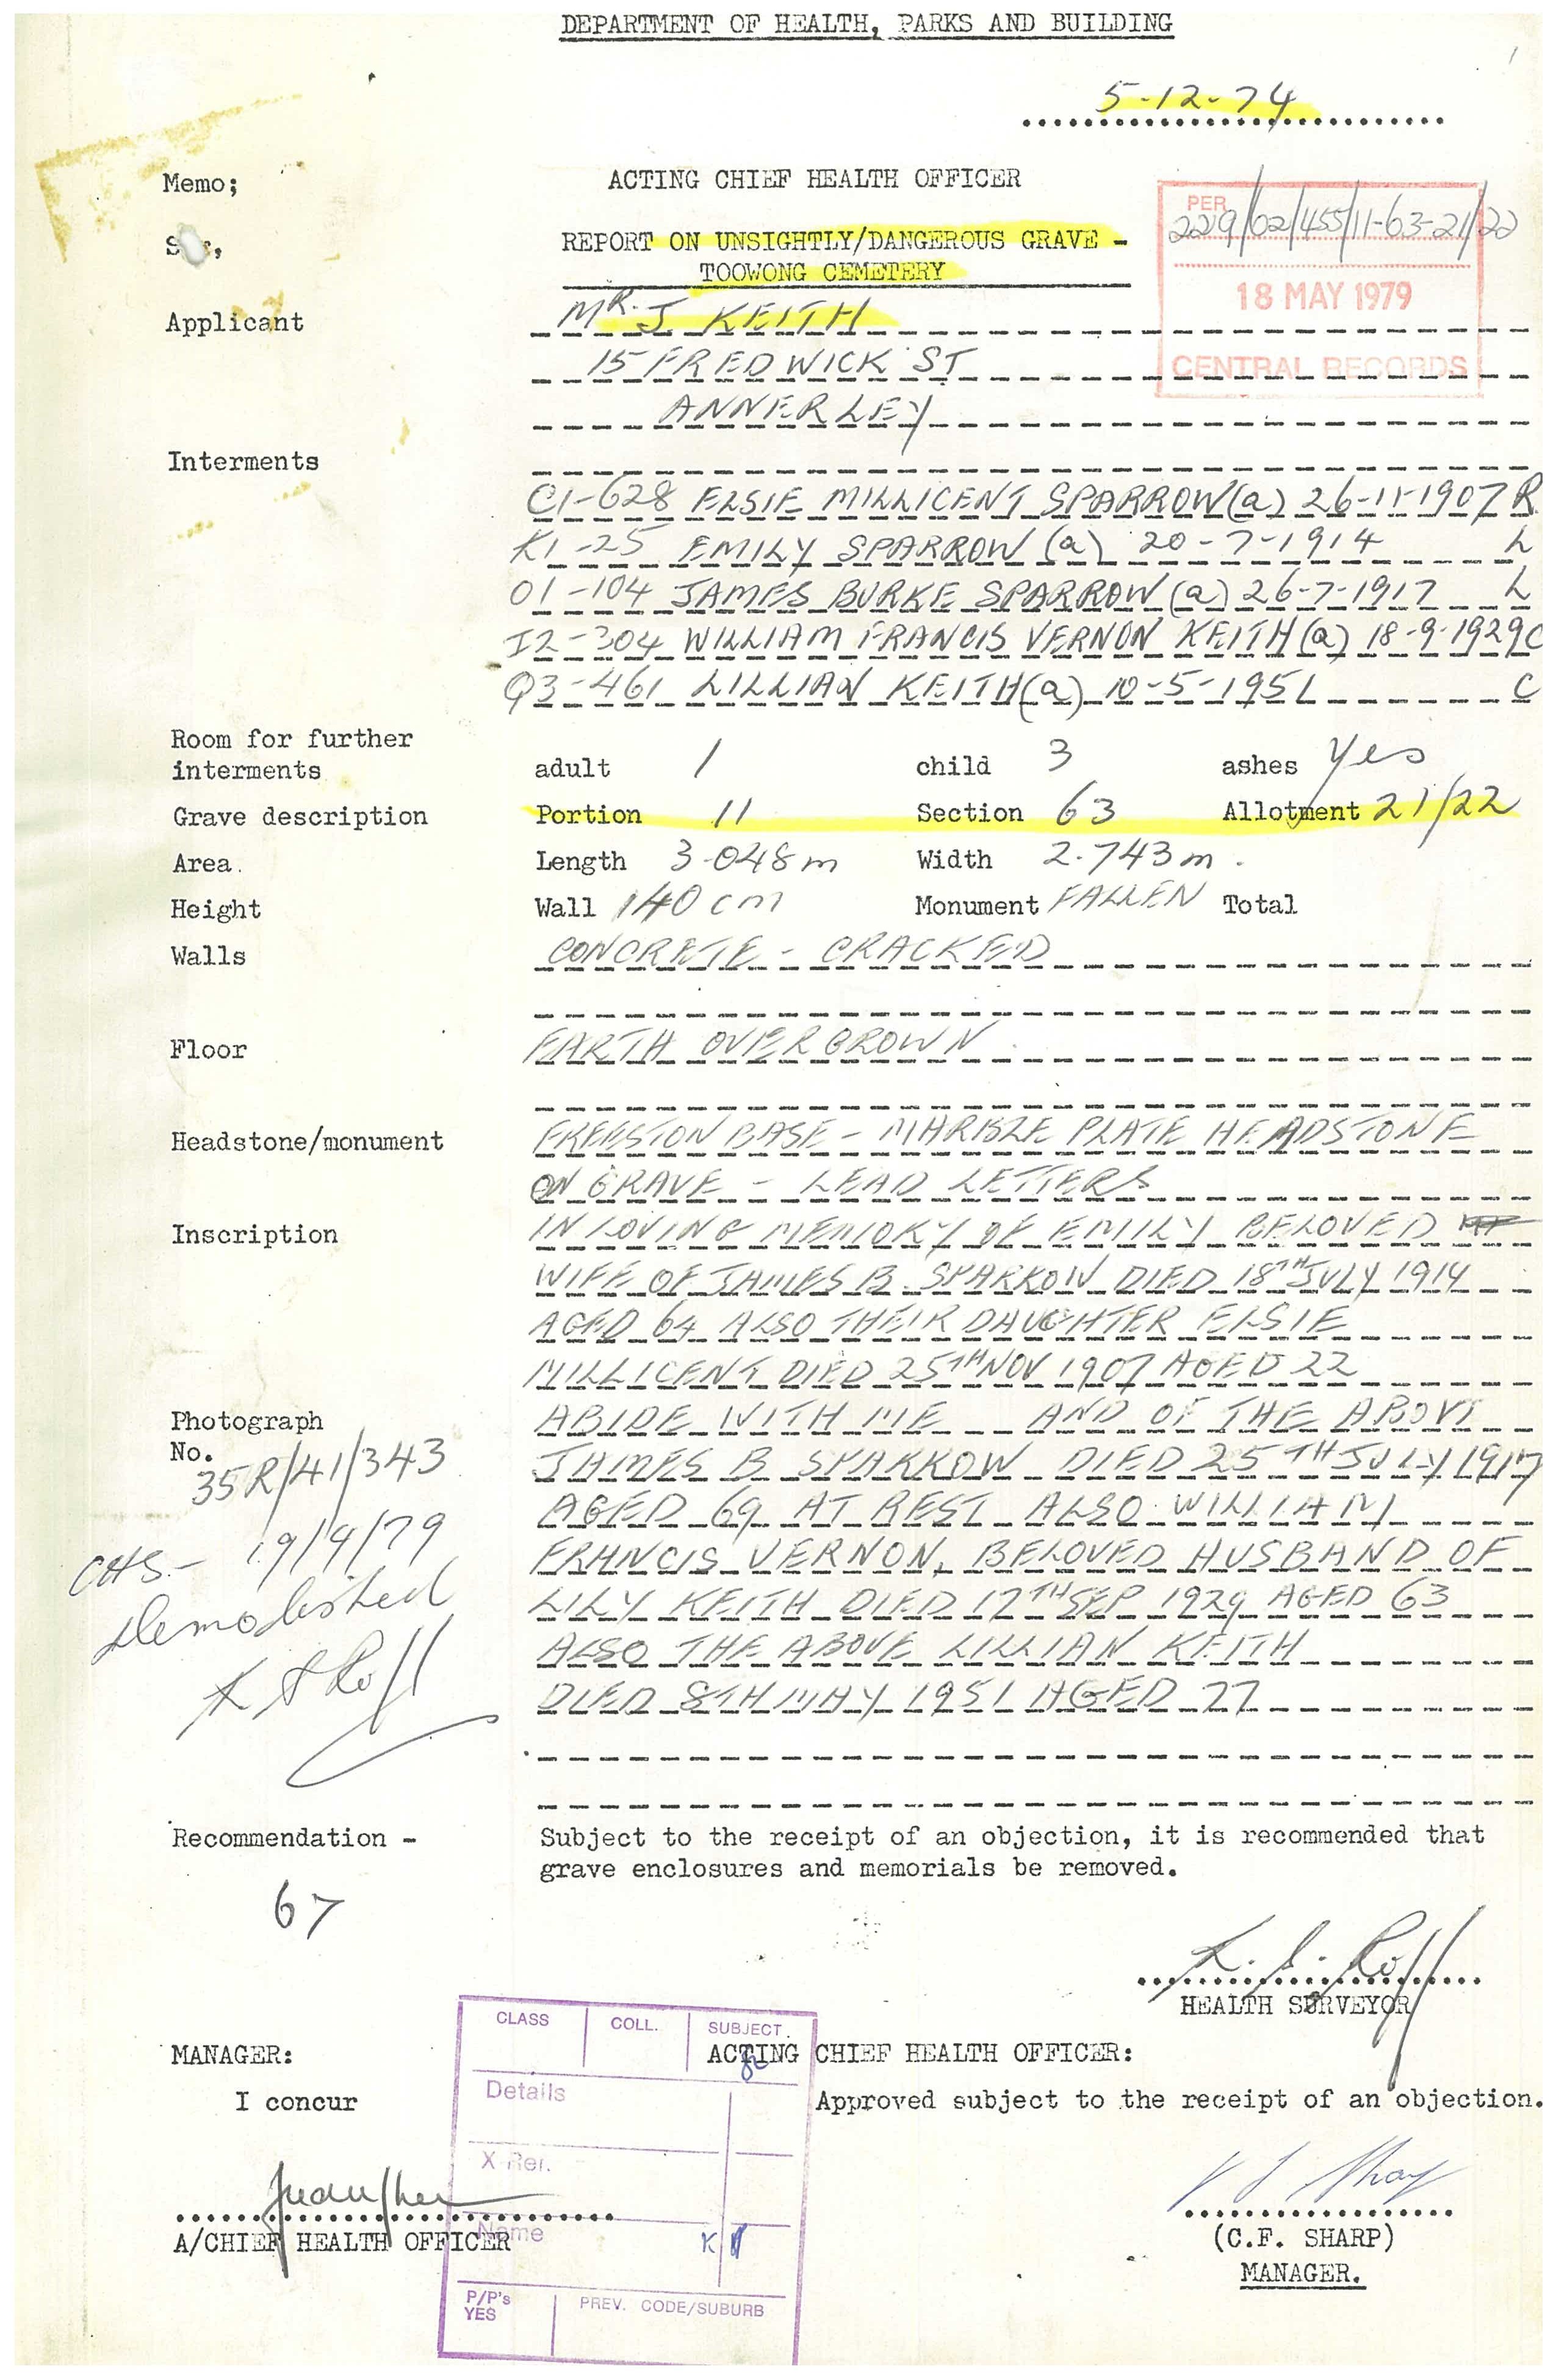 DEPARTMENT OF HEALTH, PARKS AND BUILDING
5-12-74
Memo;
ACTING CHIEF HEALTH OFFICER
PER
229/02/455/11-63-21/22
REPORT ON UNSIGHTLY/DANGEROUS GRAVE -
TOOWONG CEMETERY
18 MAY 1979
CENTRAL RECORDS
Applicant MR. J KEITH
15 FREDWICK ST
ANNERLEY
Interments
C1-628 ELSIE MILLICENT SPARROW (a) 26-11-1907 R
K1-25 EMILY SPARROW (a) 20-7-1914 L
01-104 JAMES BURKE SPARROW (a) 26-7-1917 L
I2-304 WILLIAM FRANCIS VERNON KEITH (a) 18-9-1929 C
Q3-461 LILLIAN KEITH (a) 10-5-1951 C
Room for further
interments adult 1 child 3 ashes Yes
Grave description Portion 11 Section 63 Allotment 21/22
Area. Length 3.048m Width 2.743m.
Height Wall 140 cm Monument FALLEN Total
Walls CONCRETE - CRACKED
Floor EARTH OVERGROWN
Headstone/monument FREESTON BASE - MARBLE PLATE HEADSTONE
ON GRAVE - LEAD LETTERS
Inscription IN LOVING MEMORY OF EMILY BELOVED
WIFE OF JAMES B. SPARROW DIED 18TH JULY 1914
AGED 64 ALSO THEIR DAUGHTER ELSIE
MILLICENT DIED 25TH NOV 1907 AGED 22
Photograph ABIDE WITH ME AND OF THE ABOVE
No. 35R/41/343
JAMES B SPARROW DIED 25TH JULY 1917
AGED 69 AT REST ALSO WILLIAM
FRANCIS VERNON, BELOVED HUSBAND OF
LILY KEITH DIED 17TH SEP 1929 AGED 63
ALSO THE ABOVE LILLIAN KEITH
DIED 8TH MAY 1951 AGED 77
CHS - 19/9/79
Demolished
Recommendation - Subject to the receipt of an objection, it is recommended that
grave enclosures and memorials be removed.
67
HEALTH SURVEYOR
CLASS COLL. SUBJECT.
MANAGER: ACTING CHIEF HEALTH OFFICER:
Details
I concur Approved subject to the receipt of an objection.
X Ref.
Name
K
A/CHIEF HEALTH OFFICER (C.F. SHARP)
MANAGER.
P/P's
YES
PREV. CODE/SUBURB